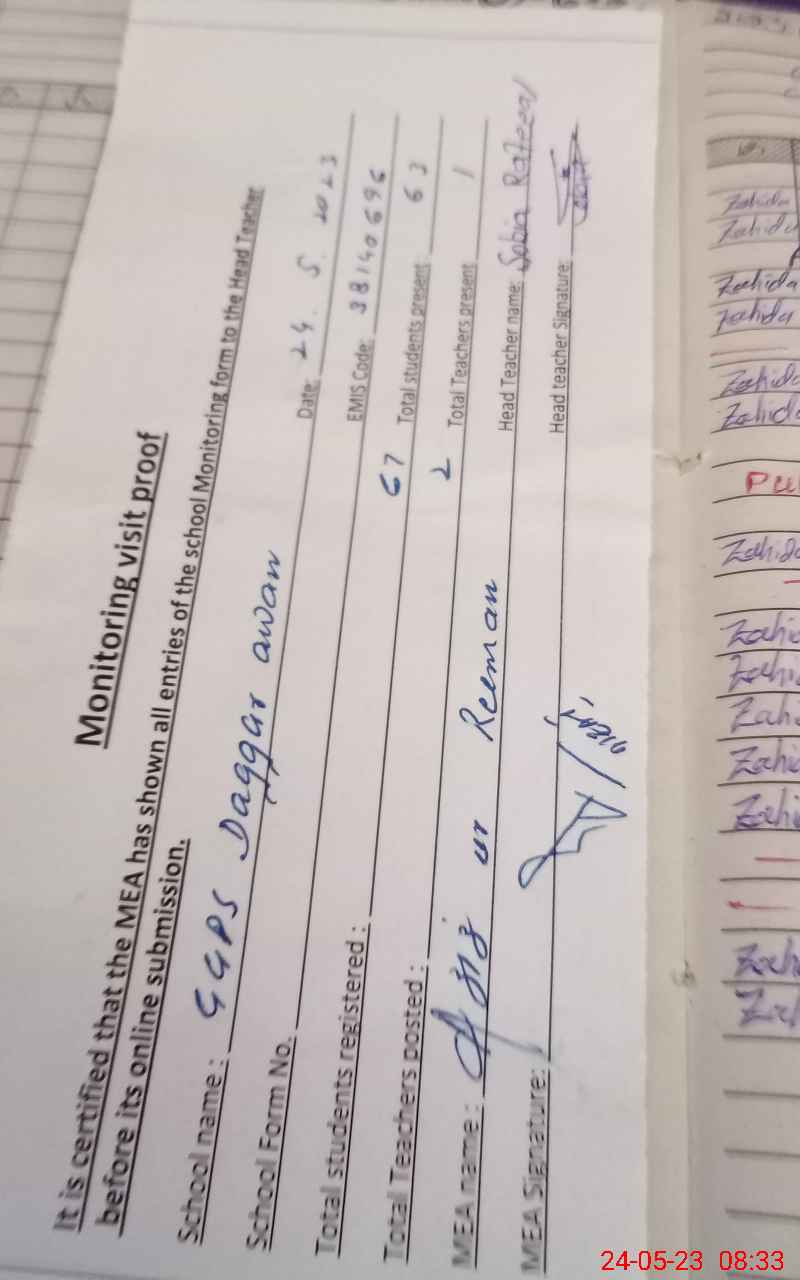 Monitoring visit proof
It is certified that the MEA has shown all entries of the school Monitoring form to the Head Teacher
before its online submission.
School name : GGPS Daggar awan Date: 24. 5. 2023
School Form No. EMIS Code: 38140696
Total students registered : 67 Total students present: 63
Total Teachers posted : 2 Total Teachers present 1
MEA name : Aziz ur Reeman Head Teacher name: Sobia
MEA Signature: Head teacher Signature:
Zahida
Zahida
Zahida
Zahida
Zahida
Zahida
Zahida
24-05-23 08:33